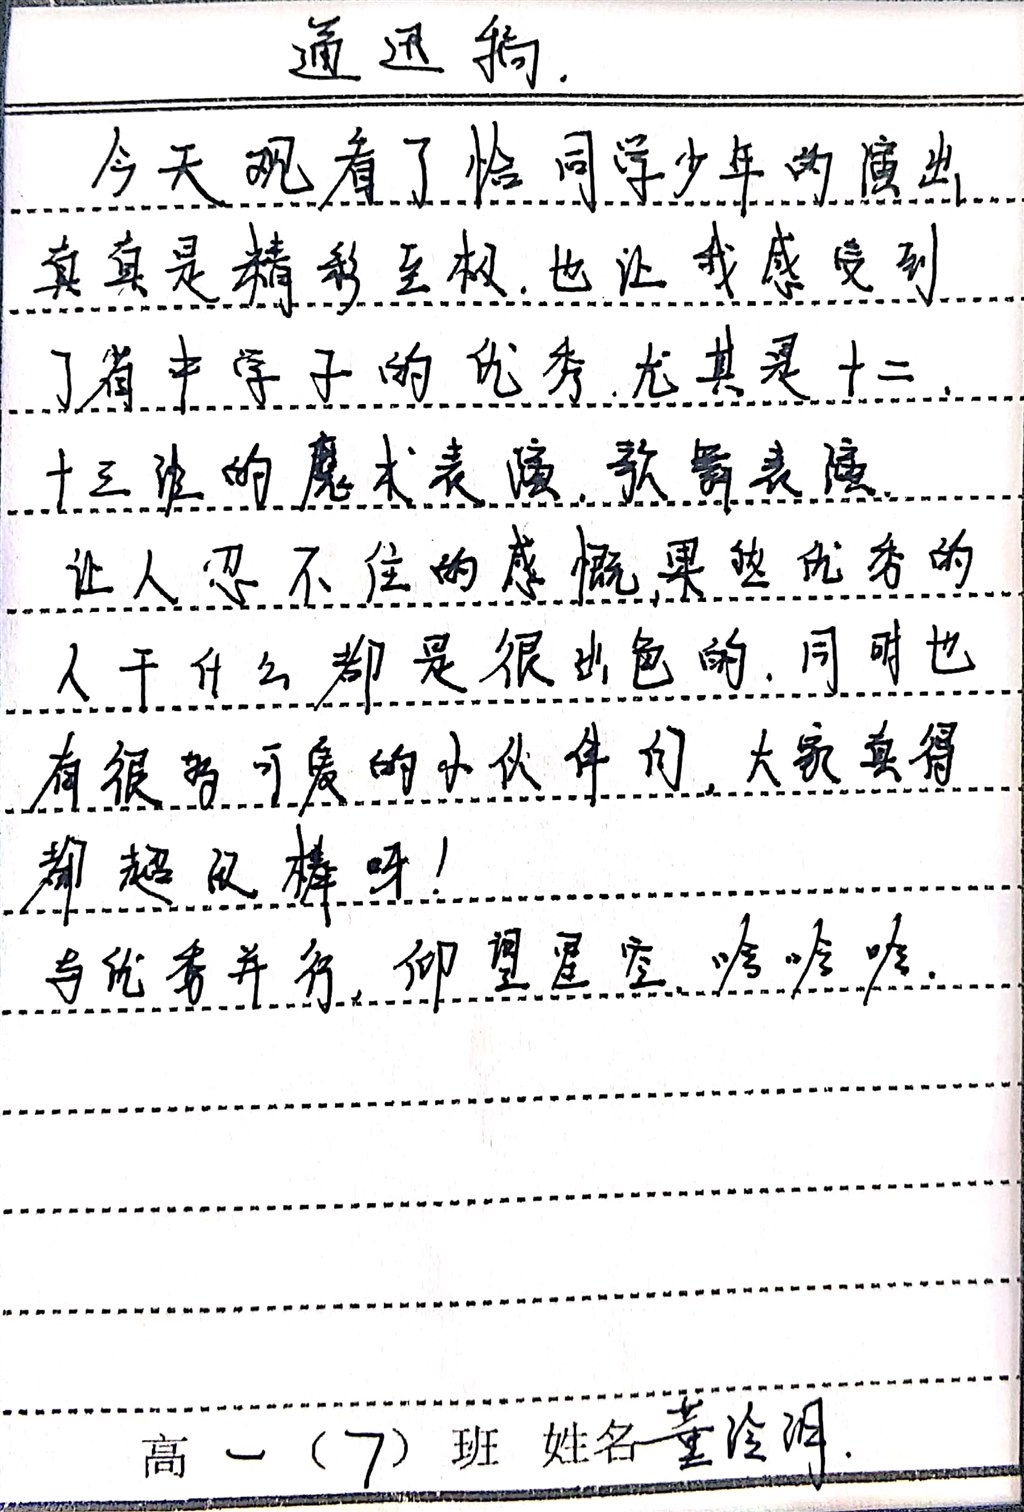 通迅稿.
今天观看了恰同学少年的演出
真真是精彩至极.也让我感受到
了省中学子的优秀.尤其是十二、
十三班的魔术表演.歌舞表演.
让人忍不住的感慨,果然优秀的
人干什么都是很出色的.同时也
有很多可爱的小伙伴们,大家真得
都超级棒呀!
与优秀并行,仰望星空.哈哈哈.
高一(7)班 姓名董